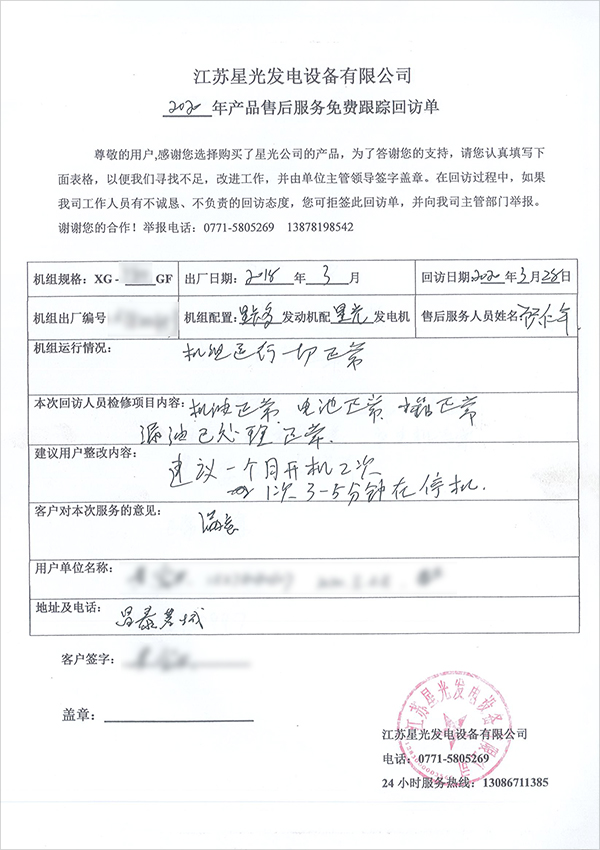 江苏星光发电设备有限公司
2020年产品售后服务免费跟踪回访单
尊敬的用户,感谢您选择购买了星光公司的产品，为了答谢您的支持，请您认真填写下
面表格，以便我们寻找不足，改进工作，并由单位主管领导签字盖章。在回访过程中，如果
我司工作人员有不诚恳、不负责的回访态度，您可拒签此回访单，并向我司主管部门举报。
谢谢您的合作！举报电话：0771-5805269 13878198542
机组规格：XG - GF 出厂日期：2018 年 3 月 回访日期：2020 年 3 月 28 日
机组出厂编号 机组配置： 发动机配 星光 发电机 售后服务人员姓名
机组运行情况： 机组运行一切正常
本次回访人员检修项目内容：机油正常 电池正常 水箱正常
漏油已处理正常.
建议用户整改内容： 建议一个月开机2次
1次3-5分钟在停机.
客户对本次服务的意见： 满意
用户单位名称：
地址及电话： 昌泰茗城
客户签字：
盖章：
江苏星光发电设备有限公司
江苏星光发电设备有限公司
电话：0771-5805269
24 小时服务热线：13086711385